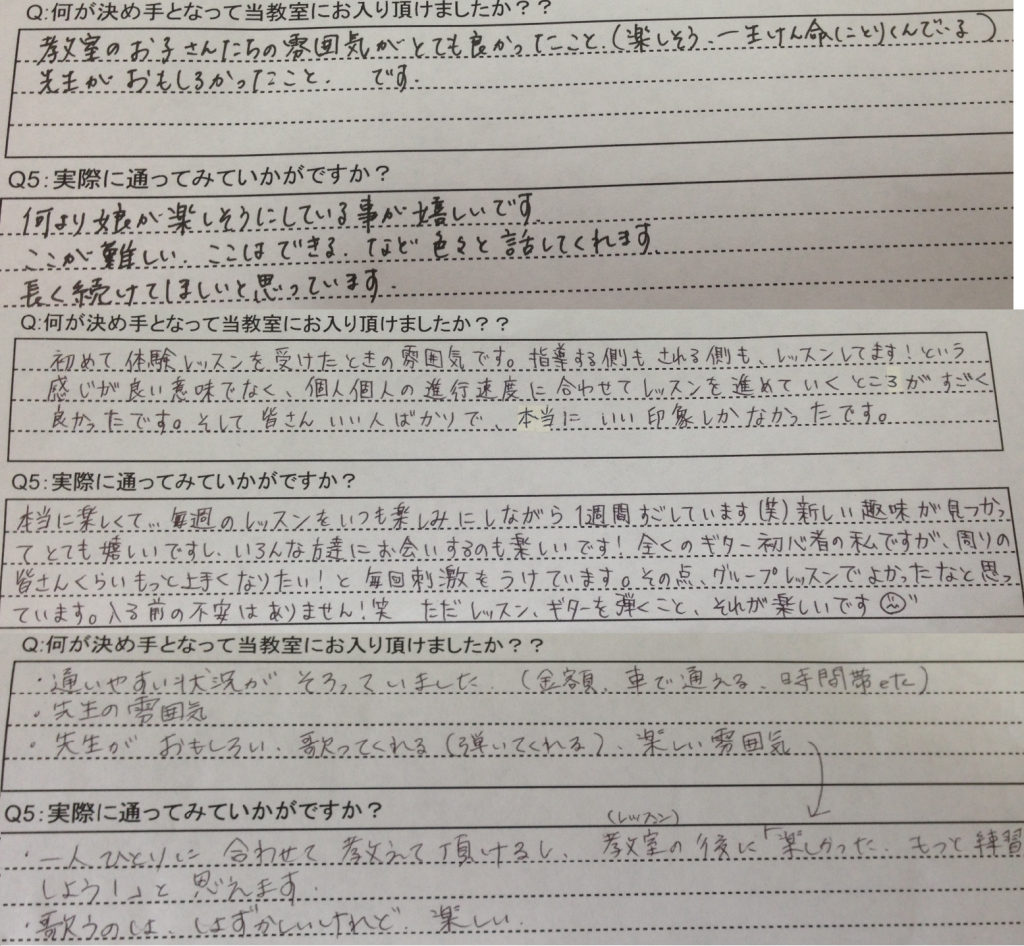 Q:何が決め手となって当教室にお入り頂けましたか？？
教室のお子さんたちの雰囲気がとても良かったこと(楽しそう、一生けん命にとりくんでいる)
先生がおもしろかったこと. です.
Q5:実際に通ってみていかがですか？
何より娘が楽しそうにしている事が嬉しいです.
ここが難しい、ここはできる、など色々と話してくれます.
長く続けてほしいと思っています.
Q:何が決め手となって当教室にお入り頂けましたか？？
初めて体験レッスンを受けたときの雰囲気です。指導する側もされる側も、レッスンしてます！という
感じが良い意味でなく、個人個人の進行速度に合わせてレッスンを進めていくところがすごく
良かったです。そして皆さんいい人ばかりで、本当にいい印象しかなかったです。
Q5:実際に通ってみていかがですか？
本当に楽しくて…毎週のレッスンをいつも楽しみにしながら1週間すごしています(笑)新しい趣味が見つかっ
てとても嬉しいですし、いろんな方達にお会いするのも楽しいです！全くのギター初心者の私ですが、周りの
皆さんくらいもっと上手くなりたい！と毎回刺激もうけています。その点、グループレッスンでよかったなと思っ
ています。入る前の不安はありません！笑 ただレッスン、ギターを弾くこと、それが楽しいです☺"
Q:何が決め手となって当教室にお入り頂けましたか？？
・通いやすい状況がそろっていました.(金額、車で通える、時間帯etc)
・先生の雰囲気
・先生がおもしろい、歌ってくれる(弾いてくれる)、楽しい雰囲気
Q5:実際に通ってみていかがですか？
(レッスン)
・一人ひとりに合わせて教えて頂けるし、教室の後に「楽しかった.もっと練習
しよう！」と思えます.
・歌うのは、はずかしいけれど、楽しい.